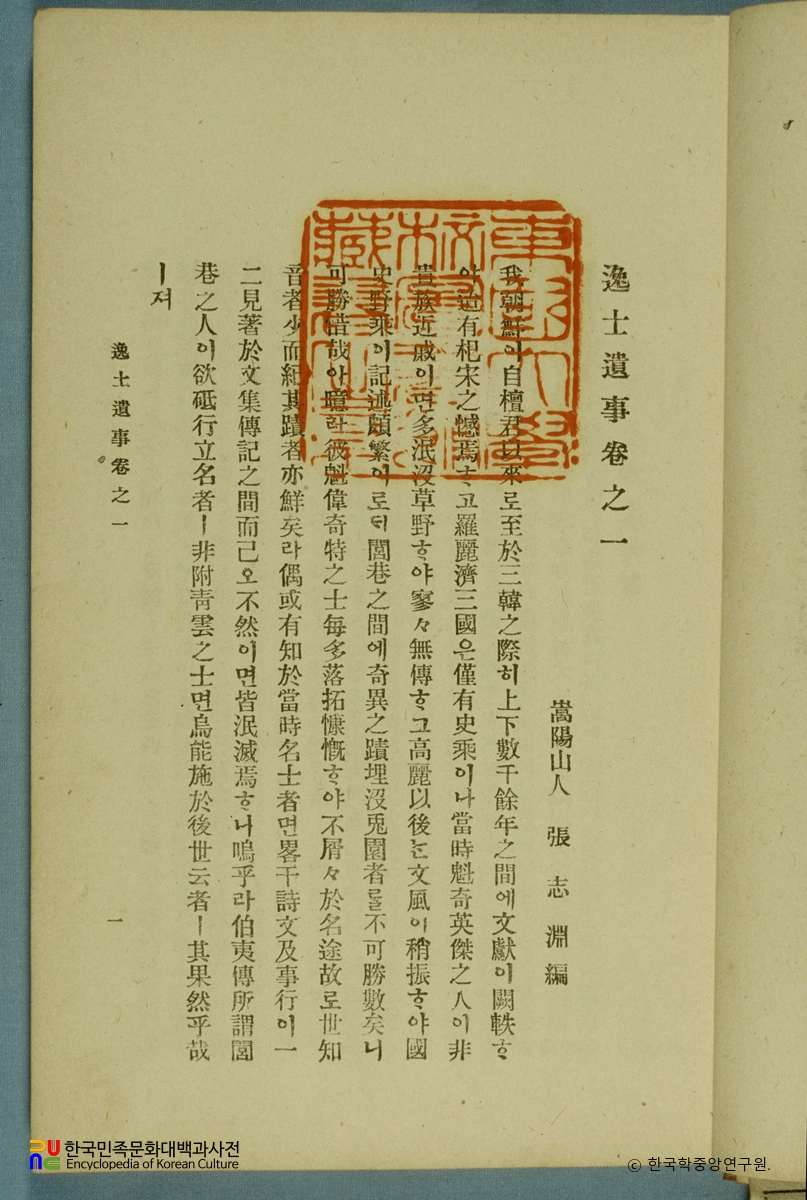 逸士遺事卷之一
嵩陽山人 張志淵 編
我朝鮮이自檀君以來로至於三韓之際히上下數千餘年之間에文獻이闕軼ᄒᆞ
야迨有杞宋之憾焉ᄒᆞ고羅麗濟三國은僅有史乘이나當時魁奇英傑之人이非
貴族近戚이면多泯沒草野ᄒᆞ야寥々無傳ᄒᆞ그高麗以後ᄂᆞᆫ文風이稍振ᄒᆞ야國
史野乘이記述頗繁이로ᄃᆡ閭巷之間에奇異之蹟埋沒兎園者ᄅᆞᆯ不可勝數矣니
可勝惜哉아噫라彼魁偉奇特之士每多落拓慷慨ᄒᆞ야不屑々於名途故로世知
音者少而紀其蹟者亦鮮矣라偶或有知於當時名士者면畧干詩文及事行이一
二見著於文集傳記之間而己오不然이면皆泯滅焉ᄒᆞ나嗚乎라伯夷傳所謂閭
巷之人이欲砥行立名者ㅣ非附靑雲之士면烏能施於後世云者ㅣ其果然乎哉
ㅣ져
逸士遺事卷之一
一
한국민족문화대백과사전
Encyclopedia of Korean Culture
ⓒ 한국학중앙연구원.